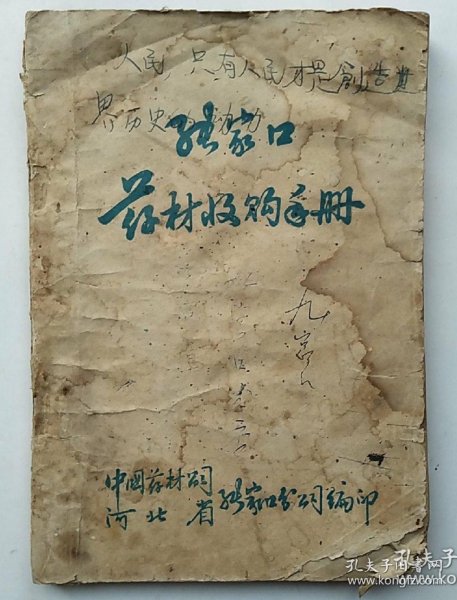 人民，只有人民才是創造世
界历史的动力
张家口
药材收购手册
九宮
中國药材公司
河北省张家口分公司编印
孔夫子旧书网
www.kongfz.com
孔夫子
www.k